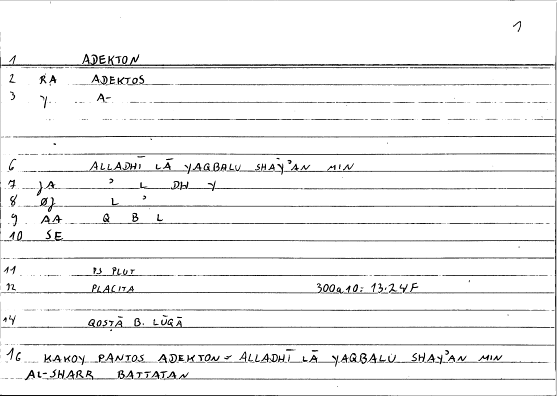 1
1 ADEKTON
2 RA ADEKTOS
3 Y A-
6 ALLADHĪ LĀ YAQBALU SHAYʾAN MIN
7 JA ʾ L DH Y
8 ØJ L ʾ
9 AA Q B L
10 SE
11 PS PLUT
12 PLACITA 300a10: 13.24F
14 QOSṬĀ B. LŪQĀ
16 KAKOY PANTOS ADEKTON = ALLADHĪ LĀ YAQBALU SHAYʾAN MIN
AL-SHARR BATTATAN